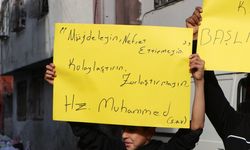 "Müjdeleyin, Nefret
Ettirmeyin",
Kolaylaştırın,
Zorlaştırmayın.
Hz. Muhammed
(s.a.v)
BAŞLI